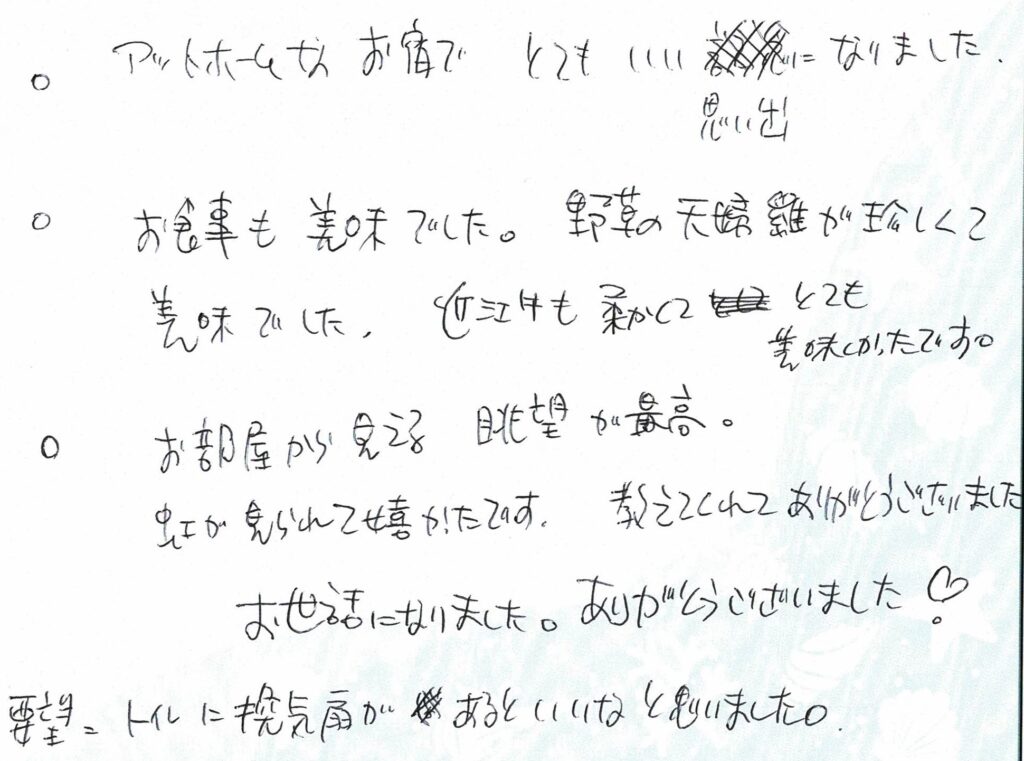 ○ アットホームな お宿で とても いい になりました.
思い出
○ お食事も 美味でした。 野草の天婦羅が珍しくて
美味でした. 近江牛も 柔かくて とても
美味しかったです。
○ お部屋から見える 眺望が最高。
虹が見られて嬉かたです. 教えてくれてありがとうございました
お世話になりました。ありがとうございました♡
要望= トイレに換気扇が あるといいなと思いました。